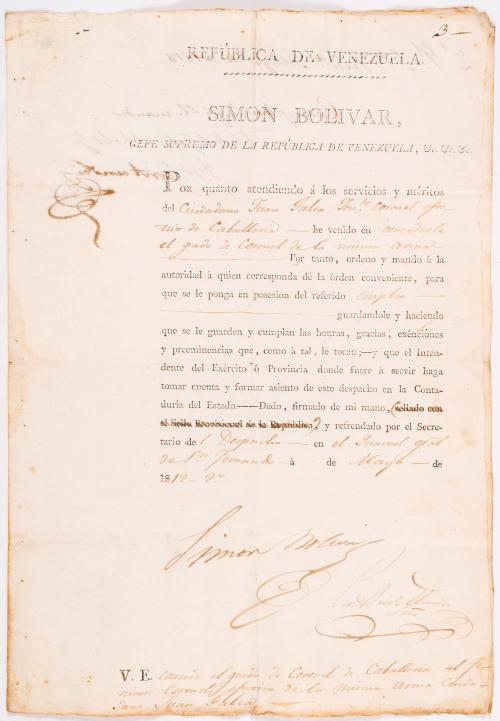 3
REPÚBLICA DE VENEZUELA.
SIMON BOLIVAR,
GEFE SUPREMO DE LA REPÚBLICA DE VENEZUELA, &c. &c. &c.
Por quanto atendiendo á los servicios y méritos
del Ciudadano Juan Galea Tente. Coronel efec
tivo de Caballeria — he venido en concederle
el grado de Coronel de la misma arma
Por tanto, ordeno y mando á la
autoridad á quien corresponda dé la órden conveniente, para
que se le ponga en posesion del referido empleo
guardandole y haciendo
que se le guarden y cumplan las honras, gracias, exénciones
y preeminencias que, como á tal, le tocan;—y que el Inten-
dente del Exército ó Provincia donde fuere á servir haga
tomar cuenta y formar asiento de este despacho en la Conta-
duria del Estado.——Dado, firmado de mi mano, (sellado con
el Sello Provisional de la República) y refrendado por el Secre-
tario del Despacho — en el Quartel gral
de Sn Fernando — á de Mayo — de
1819 - 9º
Simon Bolivar
V. E. concede el grado de Coronel de Caballeria al Te
niente Coronel efectivo de la misma Arma Ciuda
dano Juan Galea